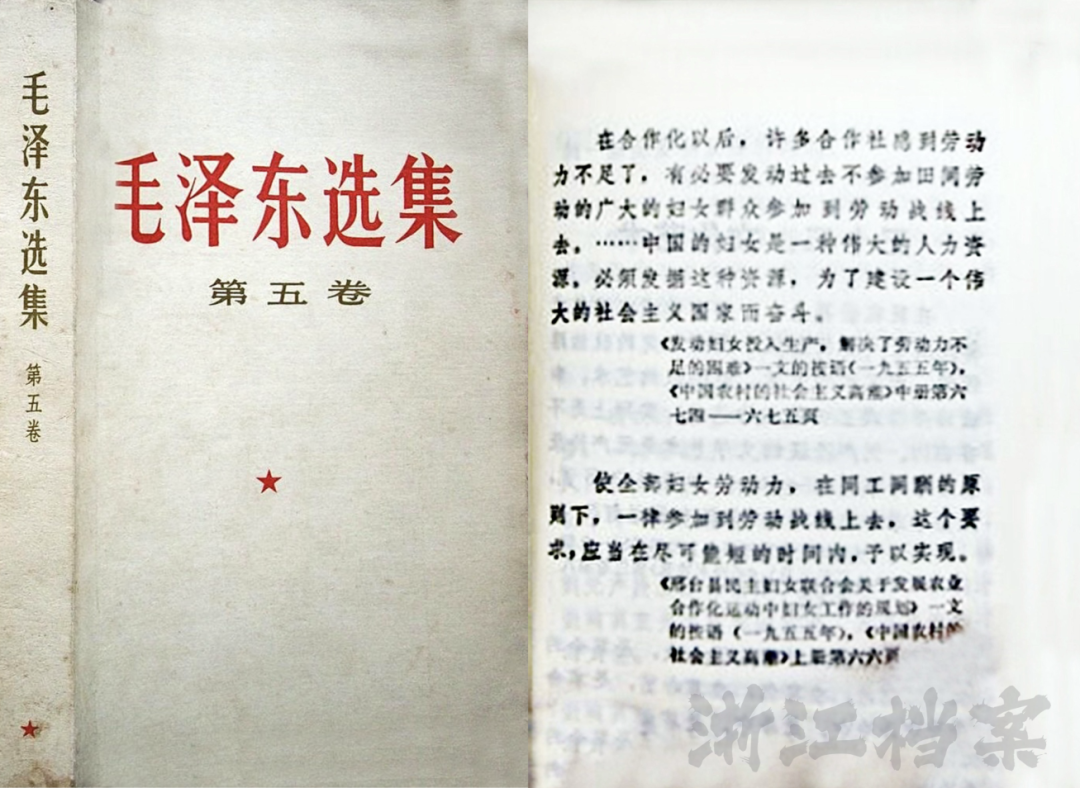 毛泽东选集
第五卷
毛泽东选集
第五卷
在合作化以后，许多合作社感到劳动
力不足了，有必要发动过去不参加田间劳
动的广大的妇女群众参加到劳动战线上
去。……中国的妇女是一种伟大的人力资
源。必须发掘这种资源，为了建设一个伟
大的社会主义国家而奋斗。
《发动妇女投入生产，解决了劳动力不
足的困难》一文的按语（一九五五年），
《中国农村的社会主义高潮》中册第六
七四——六七五页
使全部妇女劳动力，在同工同酬的原
则下，一律参加到劳动战线上去，这个要
求，应当在尽可能短的时间内，予以实现。
《邢台县民主妇女联合会关于发展农业
合作化运动中妇女工作的规划》一文
的按语（一九五五年），《中国农村的
社会主义高潮》上册第六六页
浙江档案